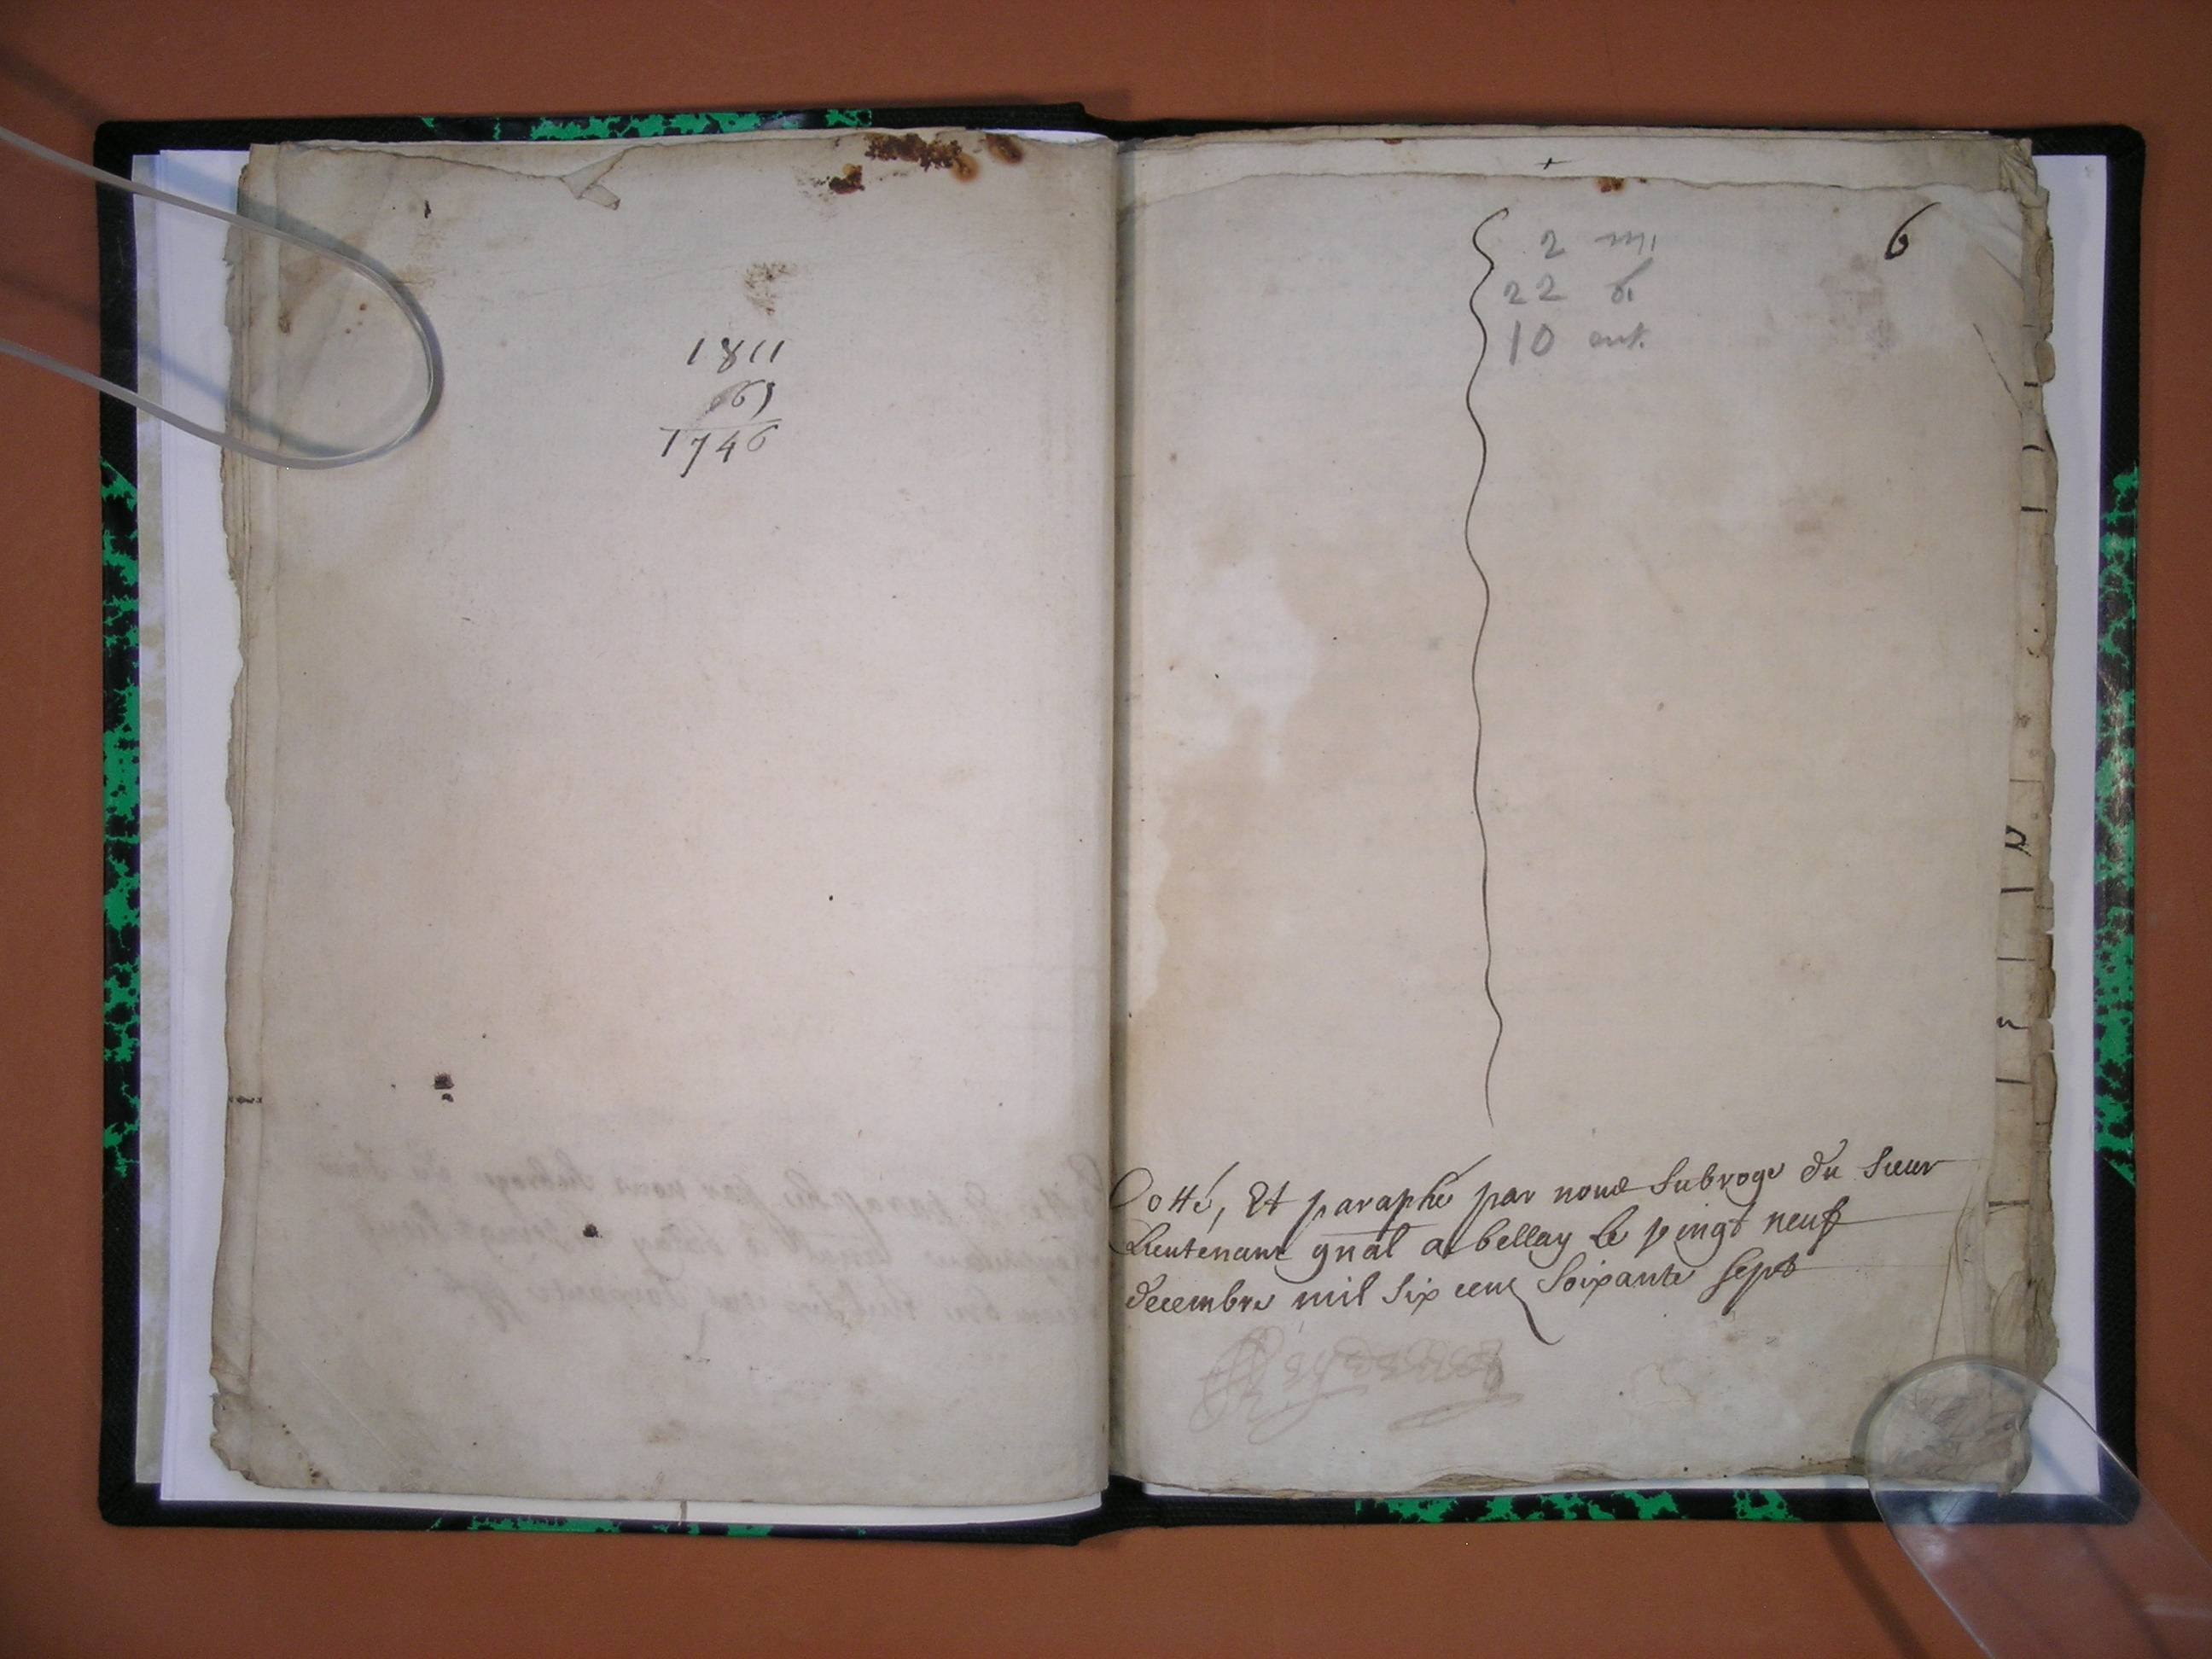 1811
65
1746
6
2 m.
22 b.
10 ent.
Cotté, Et paraphé par nous Subrogé du Sieur
Lieutenant gnãl a bellay le vingt neuf
decembre mil six cens Soixante sept